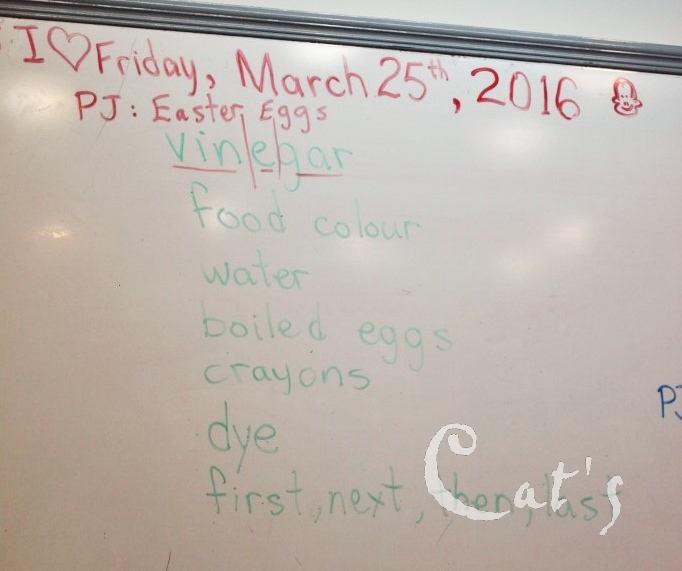 I ♡ Friday, March 25th, 2016
PJ: Easter Eggs
vin|e|gar
food colour
water
boiled eggs
crayons
dye
first, next, then, last
Cat's
PJ